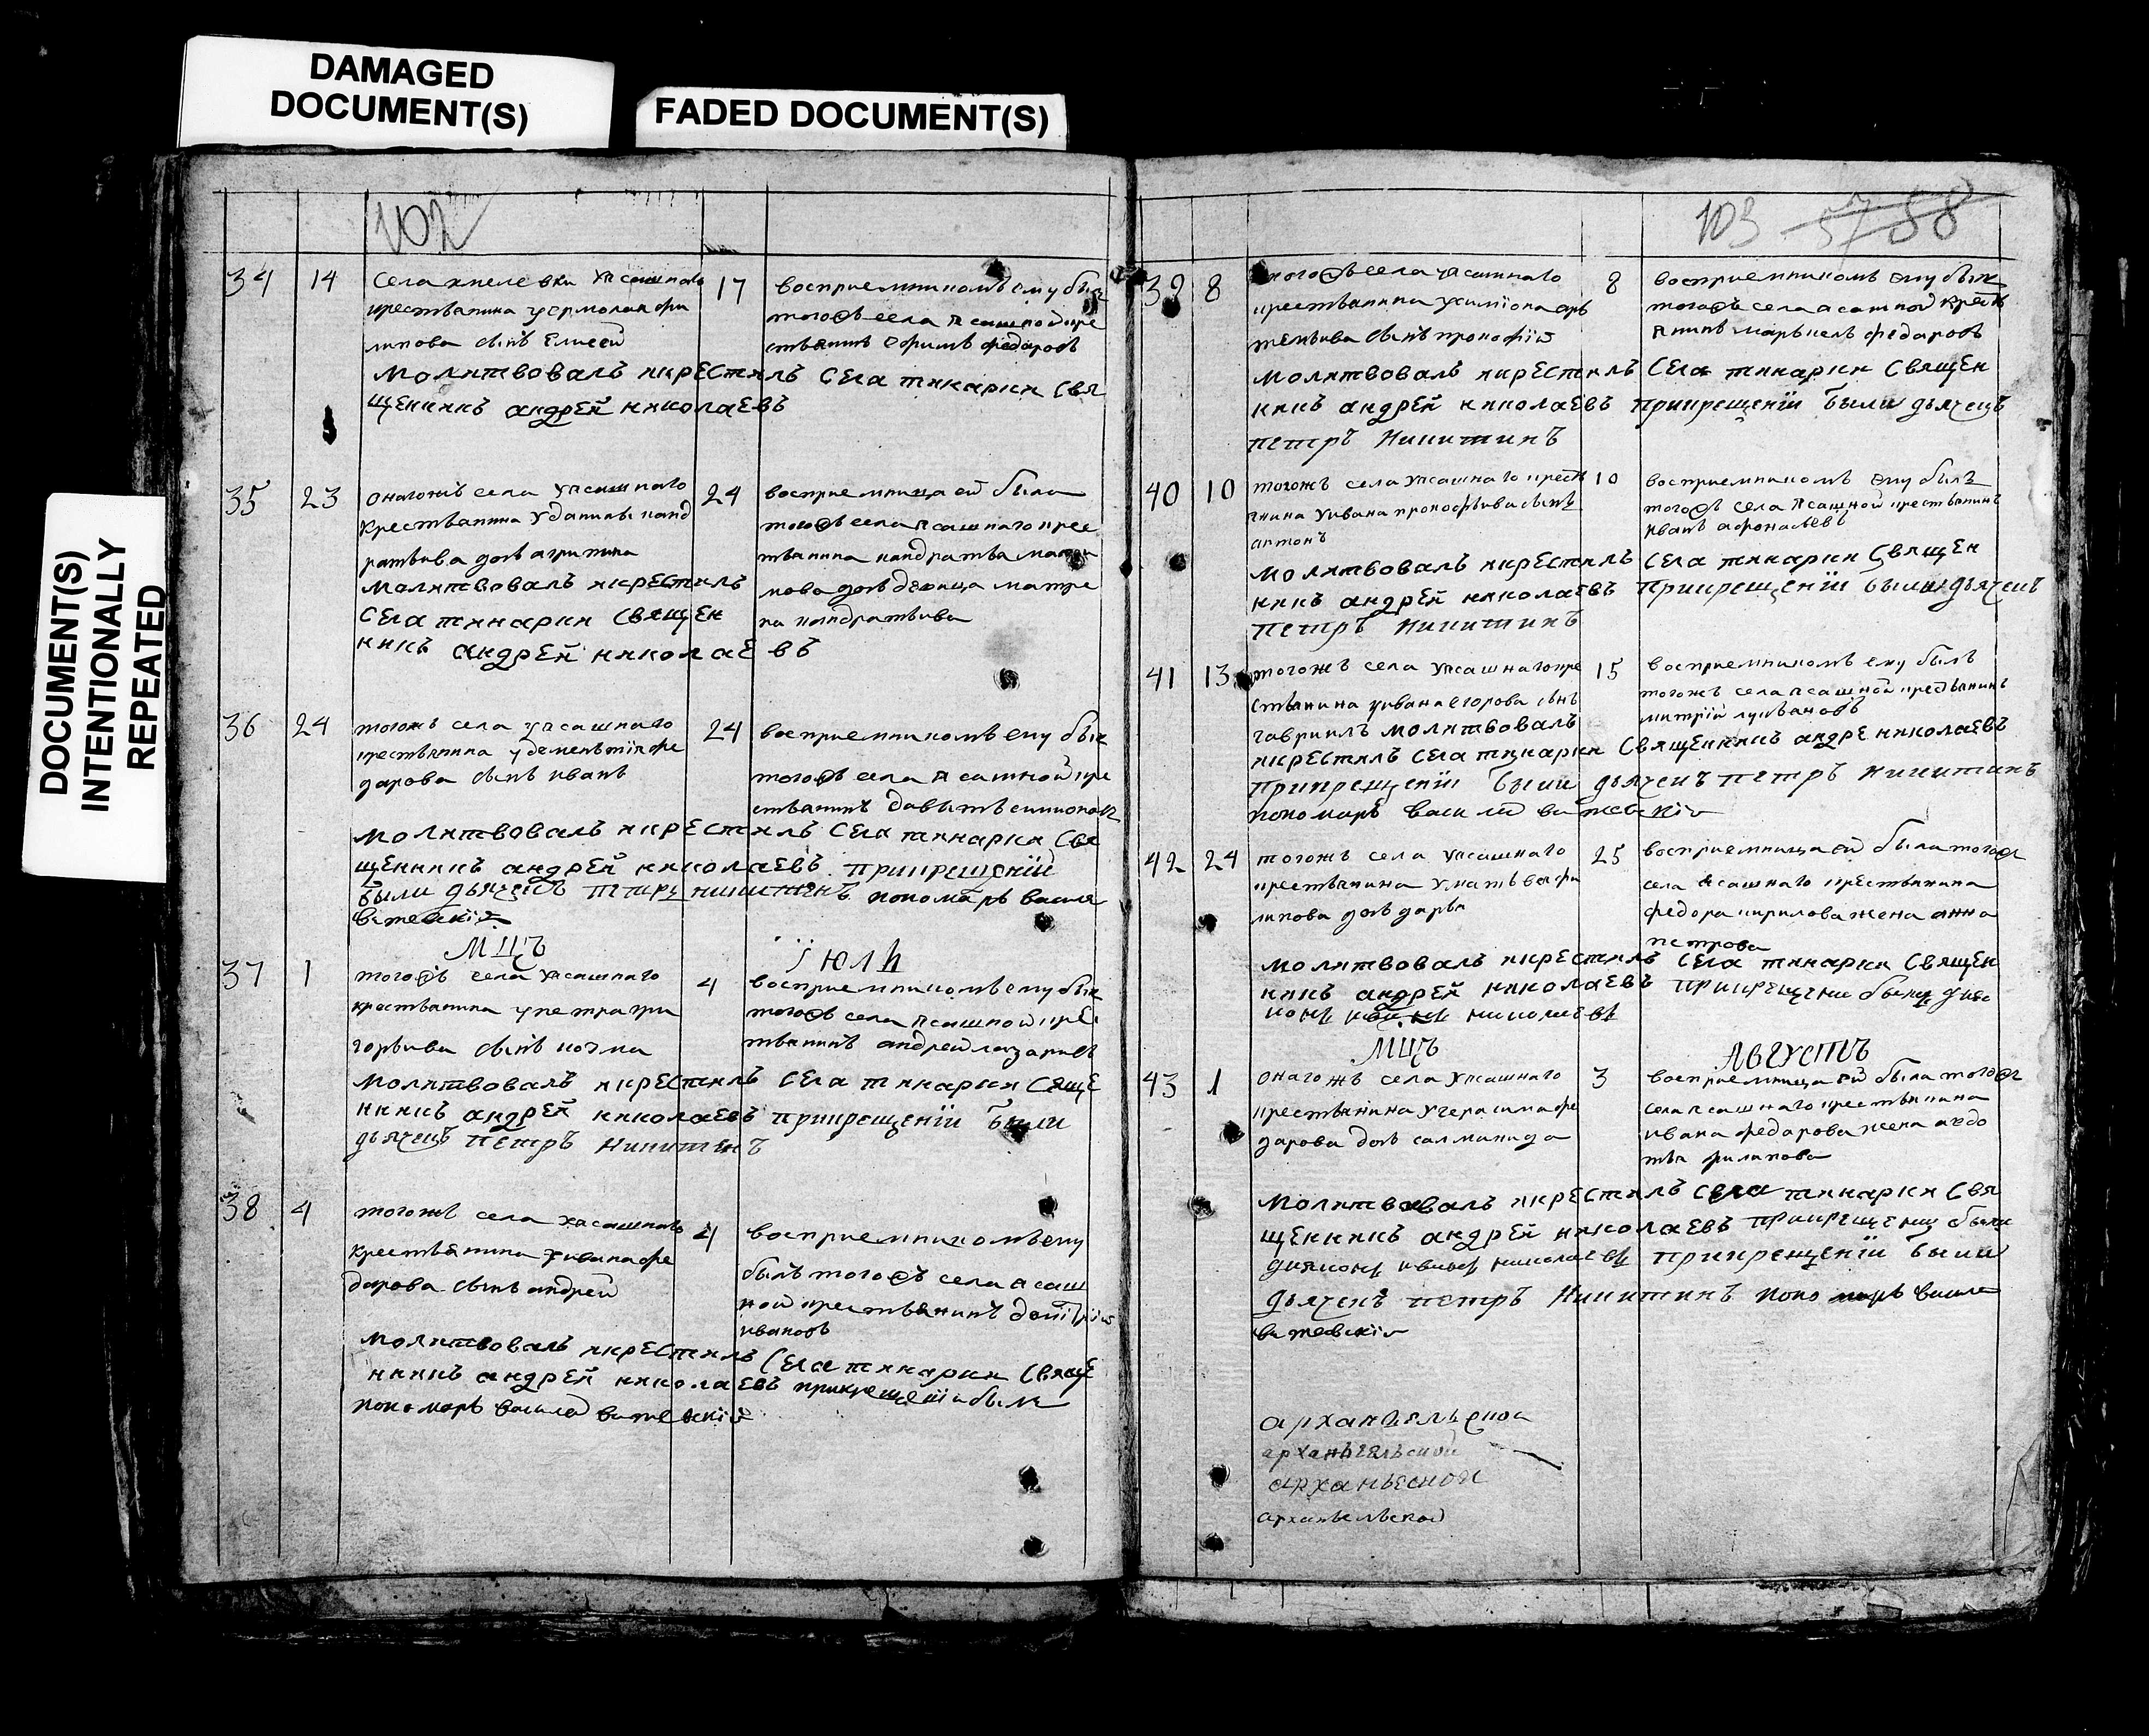 DAMAGED
DOCUMENT(S)
FADED DOCUMENT(S)
DOCUMENT(S)
INTENTIONALLY
REPEATED
102
34 14
села хмелевки ясашнаго
крестьянина уермолая фи
липова сынъ Елисей
17
восприемникомъ ему был
тогожъ села ясашной кре
стьянинъ ефимъ федоровъ
молитвовалъ икрестилъ села тинарки свя
щенникъ андрей николаевъ
35 23
онагожъ села ясашнаго
крестьянина уданилы канд
ратьива дочь агрипина
24
восприемница ей была
тогожъ села ясашнаго крес
тьянина кандратья
нова дочь девица матре
на кандратьива
молитвовалъ икрестилъ
села тинарки священ
никъ андрей николаевъ
36 24
тогожъ села уясашнаго
крестьянина удементия фе
дарова сынъ иванъ
24
восприемникомъ ему был
тогожъ села ясашной кре
стьянинъ давытъ симионов
молитвовалъ икрестилъ села тинарки свя
щенникъ андрей николаевъ прикрещении
были дьячекъ петръ никитинъ пономарь василе
витевский
мцъ июль
37 1
тогожъ села уясашнаго
крестьянина упетра гри
горьива сынъ козма
4
восприемникомъ ему был
тогожъ села ясашной кре
тьянинъ андрей лазарив
молитвовалъ икрестилъ села тинарки свяще
никъ андрей николаевъ прикрещении были
дьячекъ петръ никитинъ
38 4
тогожъ села уясашнаго
крестьянина уивана фе
дарова сынъ андрей
4
восприемникомъ ему
былъ тогожъ села ясаш
ной крестьянинъ
ивановъ
молитвовалъ икрестилъ села тинарки свяще
никъ андрей николаевъ прикрещении были
пономарь василей витевский
103 57 58
39 8
тогожъ села уясашнаго
крестьянина усимиона арь
темьива сынъ прокофий
8
восприемникомъ ему был
тогожъ села ясашной крест
янинъ маркелъ федаровъ
молитвовалъ икрестилъ села тинарки священ
никъ андрей николаевъ прикрещении были дьячецъ
петръ никитинъ
40 10
тогожъ села уясашнаго крест
янина уивана прокофьива сынъ
антонъ
10
восприемникомъ ему былъ
тогожъ села ясашной крестьянинъ
иванъ афонасьевъ
молитвовалъ икрестилъ села тинарки священ
никъ андрей николаевъ прикрещении были дьячецъ
петръ никитинъ
41 13
тогожъ села уясашнаго кре
стьянина уивана егорова сынъ
гавриилъ молитвовалъ
15
восприемникомъ ему былъ
тогожъ села ясашной крестьянинъ
митрий лукьяновъ
икрестилъ села тинарки священникъ андре николаевъ
прикрещении были дьячекъ петръ никитинъ
пономарь василей витевский
42 24
тогожъ села уясашнаго
крестьянина уматвея фи
липова дочь дарья
25
восприемница ей была тогож
села ясашнаго крестьянина
федора кирилова жена анна
петрова
молитвовалъ икрестилъ села тинарки священ
никъ андрей николаевъ прикрещени былъ дия
конъ николаевъ
мцъ августъ
43 1
онагожъ села уясашнаго
крестьянина угерасима фе
дарова дочь саломанида
3
восприемница ей была тогож
села ясашнаго крестьянина
ивана федарова жена авдо
тья филипова
молитвовалъ икрестилъ села тинарки свя
щенникъ андрей николаевъ прикрещени были
дияконъ иванъ николаевъ прикрещении были
дьячекъ петръ никитинъ пономарь василе
витевский
архангельской
архангельской
арханьеской
арханьельской